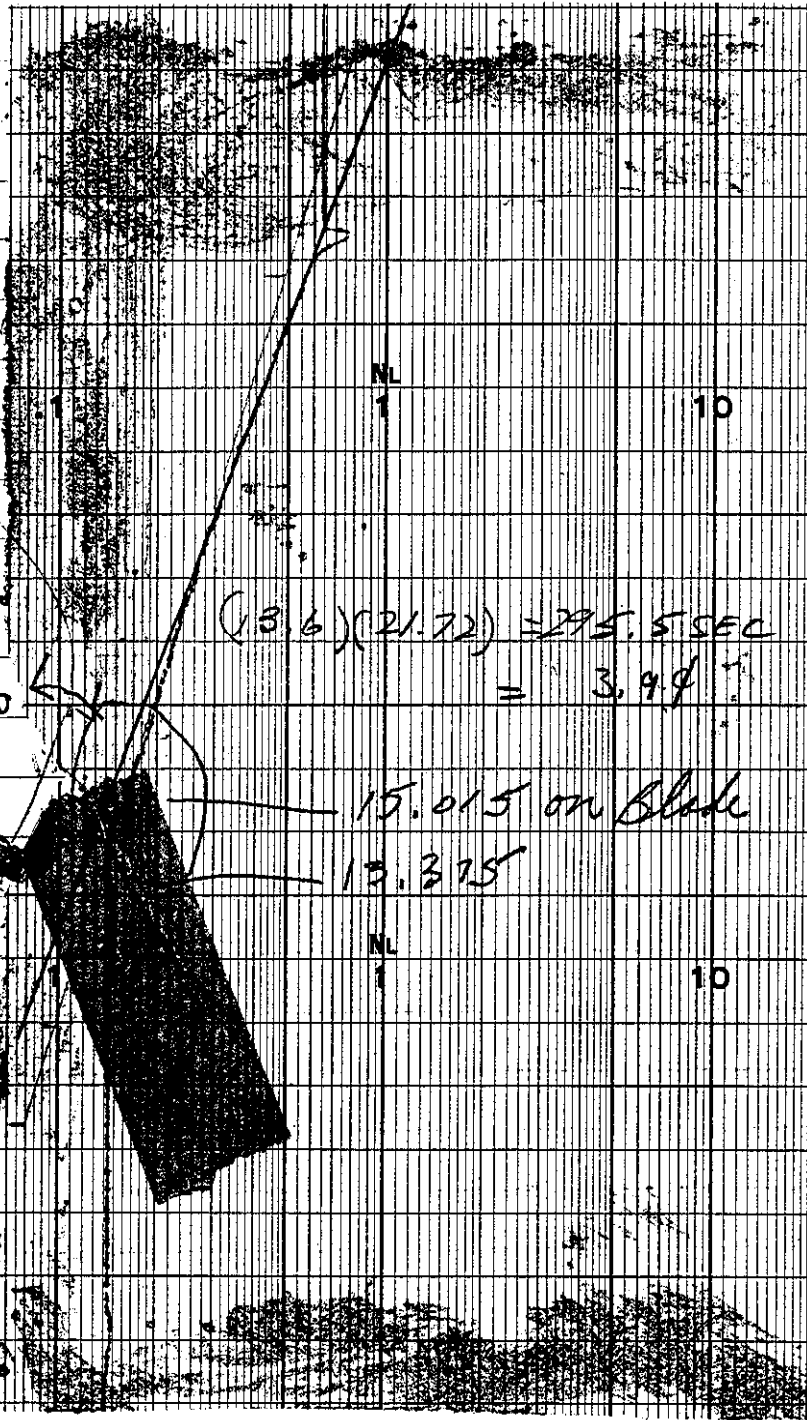 NL
.1 1 10
(13.6)(21.72) = 295.5 SEC
= 3.9¢
15.015 on Blade
13.375
NL
1 1 10